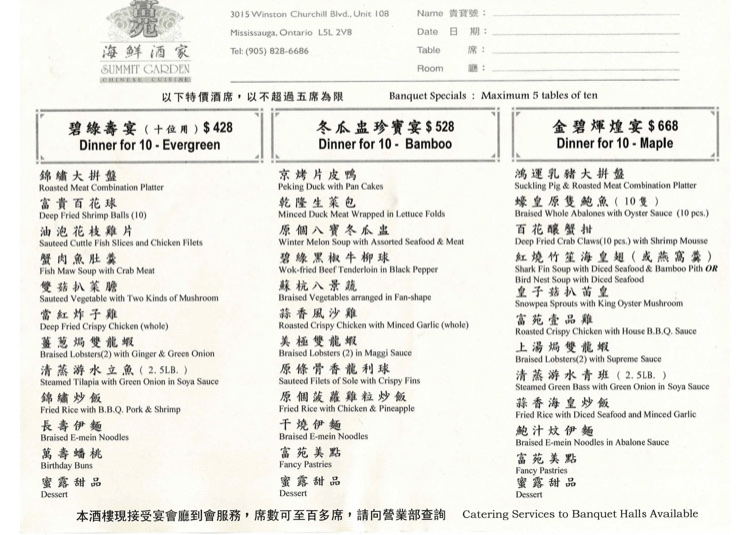 富苑
海鮮酒家
SUMMIT GARDEN
CHINESE CUISINE
3015 Winston Churchill Blvd., Unit 108
Mississauga, Ontario L5L 2V8
Tel: (905) 828-6686
Name 貴寶號：
Date 日 期：
Table 席：
Room 廳：
以下特價酒席，以不超過五席為限 Banquet Specials : Maximum 5 tables of ten
碧綠壽宴（十位用）$ 428
Dinner for 10 - Evergreen
錦繡大拼盤
Roasted Meat Combination Platter
富貴百花球
Deep Fried Shrimp Balls (10)
油泡花枝雞片
Sauteed Cuttle Fish Slices and Chicken Filets
蟹肉魚肚羹
Fish Maw Soup with Crab Meat
雙菇扒菜膽
Sauteed Vegetable with Two Kinds of Mushroom
當紅炸子雞
Deep Fried Crispy Chicken (whole)
薑蔥焗雙龍蝦
Braised Lobsters(2) with Ginger & Green Onion
清蒸游水立魚（2.5LB.）
Steamed Tilapia with Green Onion in Soya Sauce
錦繡炒飯
Fried Rice with B.B.Q. Pork & Shrimp
長壽伊麵
Braised E-mein Noodles
萬壽蟠桃
Birthday Buns
蜜露甜品
Dessert
冬瓜盅珍寶宴 $ 528
Dinner for 10 - Bamboo
京烤片皮鴨
Peking Duck with Pan Cakes
乾隆生菜包
Minced Duck Meat Wrapped in Lettuce Folds
原個八寶冬瓜盅
Winter Melon Soup with Assorted Seafood & Meat
碧綠黑椒牛柳球
Wok-fried Beef Tenderloin in Black Pepper
蘇杭八景蔬
Braised Vegetables arranged in Fan-shape
蒜香風沙雞
Roasted Crispy Chicken with Minced Garlic (whole)
美極雙龍蝦
Braised Lobsters (2) in Maggi Sauce
原條骨香龍利球
Sauteed Filets of Sole with Crispy Fins
原個菠蘿雞粒炒飯
Fried Rice with Chicken & Pineapple
干燒伊麵
Braised E-mein Noodles
富苑美點
Fancy Pastries
蜜露甜品
Dessert
金碧輝煌宴 $ 668
Dinner for 10 - Maple
鴻運乳豬大拼盤
Suckling Pig & Roasted Meat Combination Platter
蠔皇原隻鮑魚（10隻）
Braised Whole Abalones with Oyster Sauce (10 pcs.)
百花釀蟹拑
Deep Fried Crab Claws(10 pcs.) with Shrimp Mousse
紅燒竹笙海皇翅（或燕窩羹）
Shark Fin Soup with Diced Seafood & Bamboo Pith OR
Bird Nest Soup with Diced Seafood
皇子菇扒苗皇
Snowpea Sprouts with King Oyster Mushroom
富苑壹品雞
Roasted Crispy Chicken with House B.B.Q. Sauce
上湯焗雙龍蝦
Braised Lobsters(2) with Supreme Sauce
清蒸游水青班（2.5LB.）
Steamed Green Bass with Green Onion in Soya Sauce
蒜香海皇炒飯
Fried Rice with Diced Seafood and Minced Garlic
鮑汁炆伊麵
Braised E-mein Noodles in Abalone Sauce
富苑美點
Fancy Pastries
蜜露甜品
Dessert
本酒樓現接受宴會廳到會服務，席數可至百多席，請向營業部查詢 Catering Services to Banquet Halls Available